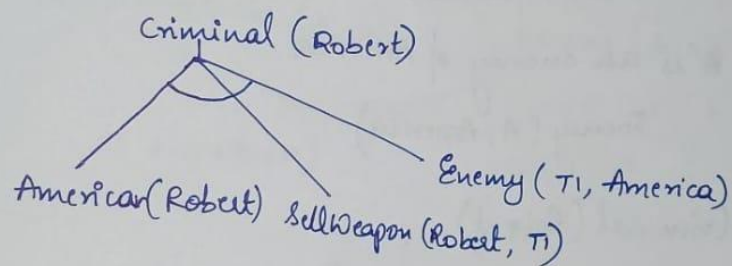 Criminal (Robert)
American (Robert)
SellWeapon (Robert, T1)
Enemy (T1, America)